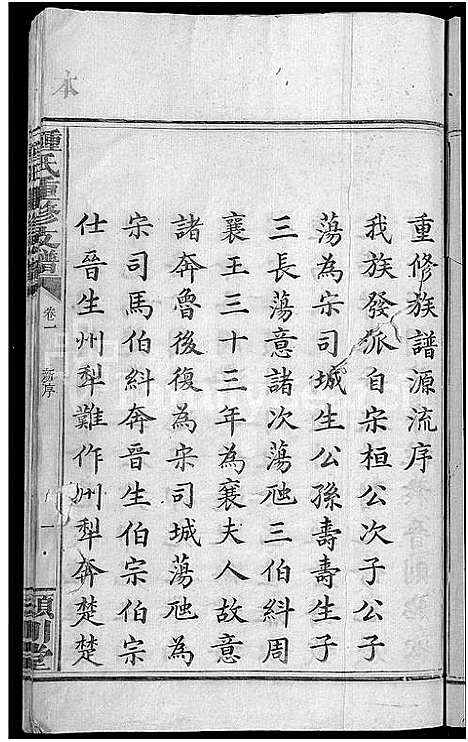 重修族譜源流序
我族發派自宋桓公次子公子
蕩為宋司城生公孫壽壽生子
三長蕩意諸次蕩虺三伯糾周
襄王三十三年為襄夫人故意
諸奔魯後復為宋司城蕩虺為
宋司馬伯糾奔晉生伯宗伯宗
仕晉生州犁難作州犁奔楚楚
鍾氏重修支譜
卷一
新序
一
潁川堂
本